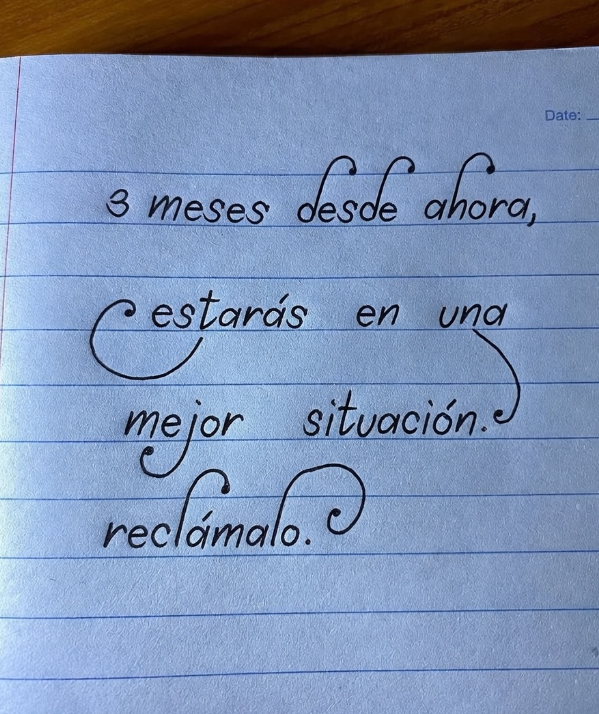 Date:
3 meses desde ahora,
estarás en una
mejor situación.
reclámalo.